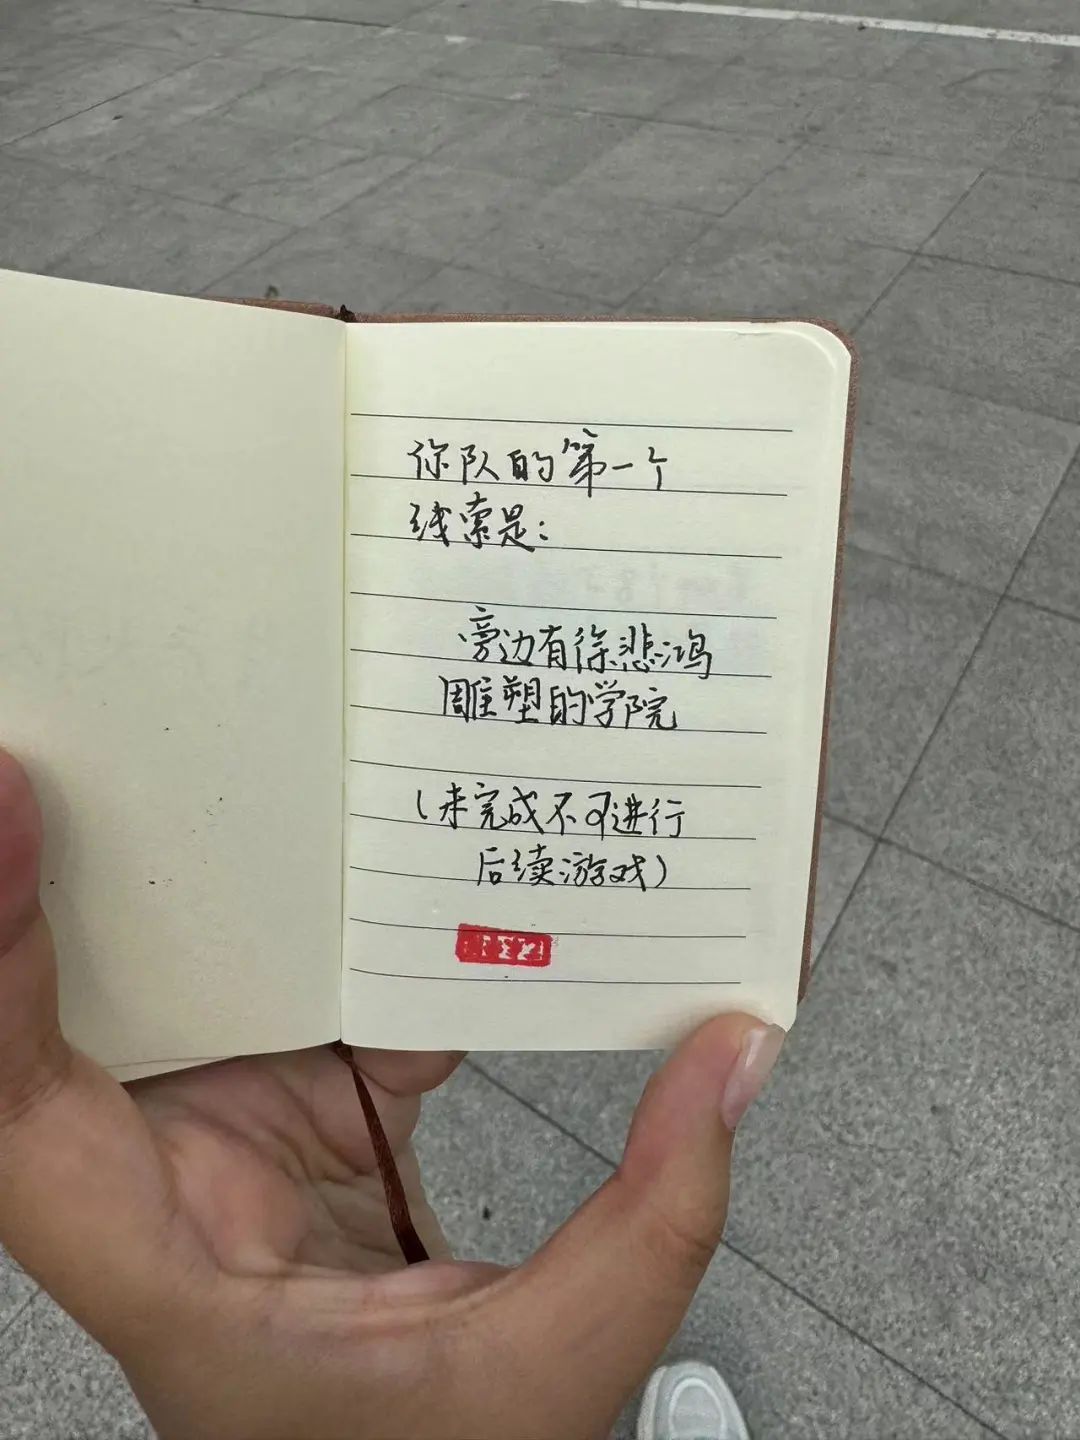 你队的第一个
线索是：
旁边有徐悲鸿
雕塑的学院
（未完成不可进行
后续游戏）